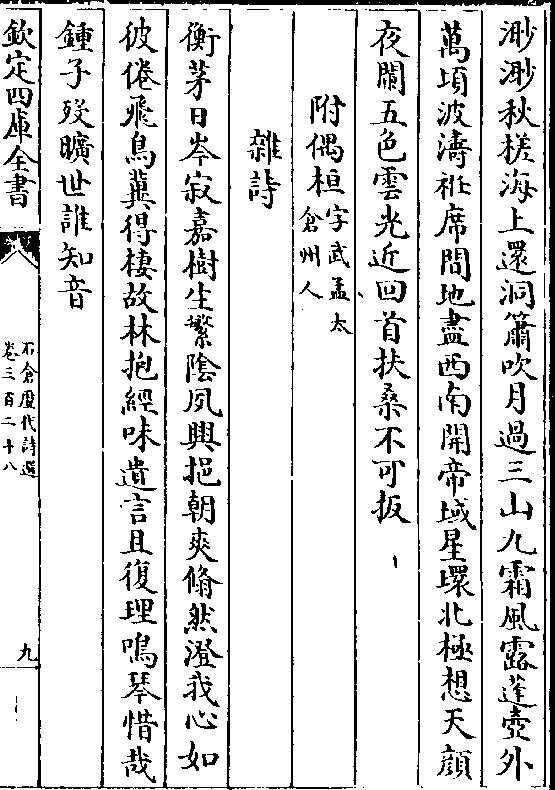 渺渺秋槎海上還洞簫吹月過三山九霜風露蓬壺外
萬頃波濤袵席間地盡西南開帝域星環北極想天顔
夜闌五色雲光近回首扶桑不可扳
附偶桓字武孟太
倉州人
雜詩
衡茅日岑寂嘉樹生繁陰夙興挹朝爽翛然澄我心如
彼倦飛鳥冀得棲故林抱經味遺言且復理鳴琴惜哉
鍾子歿曠世誰知音
欽定四庫全書
石倉歷代詩選
卷三百二十八
九